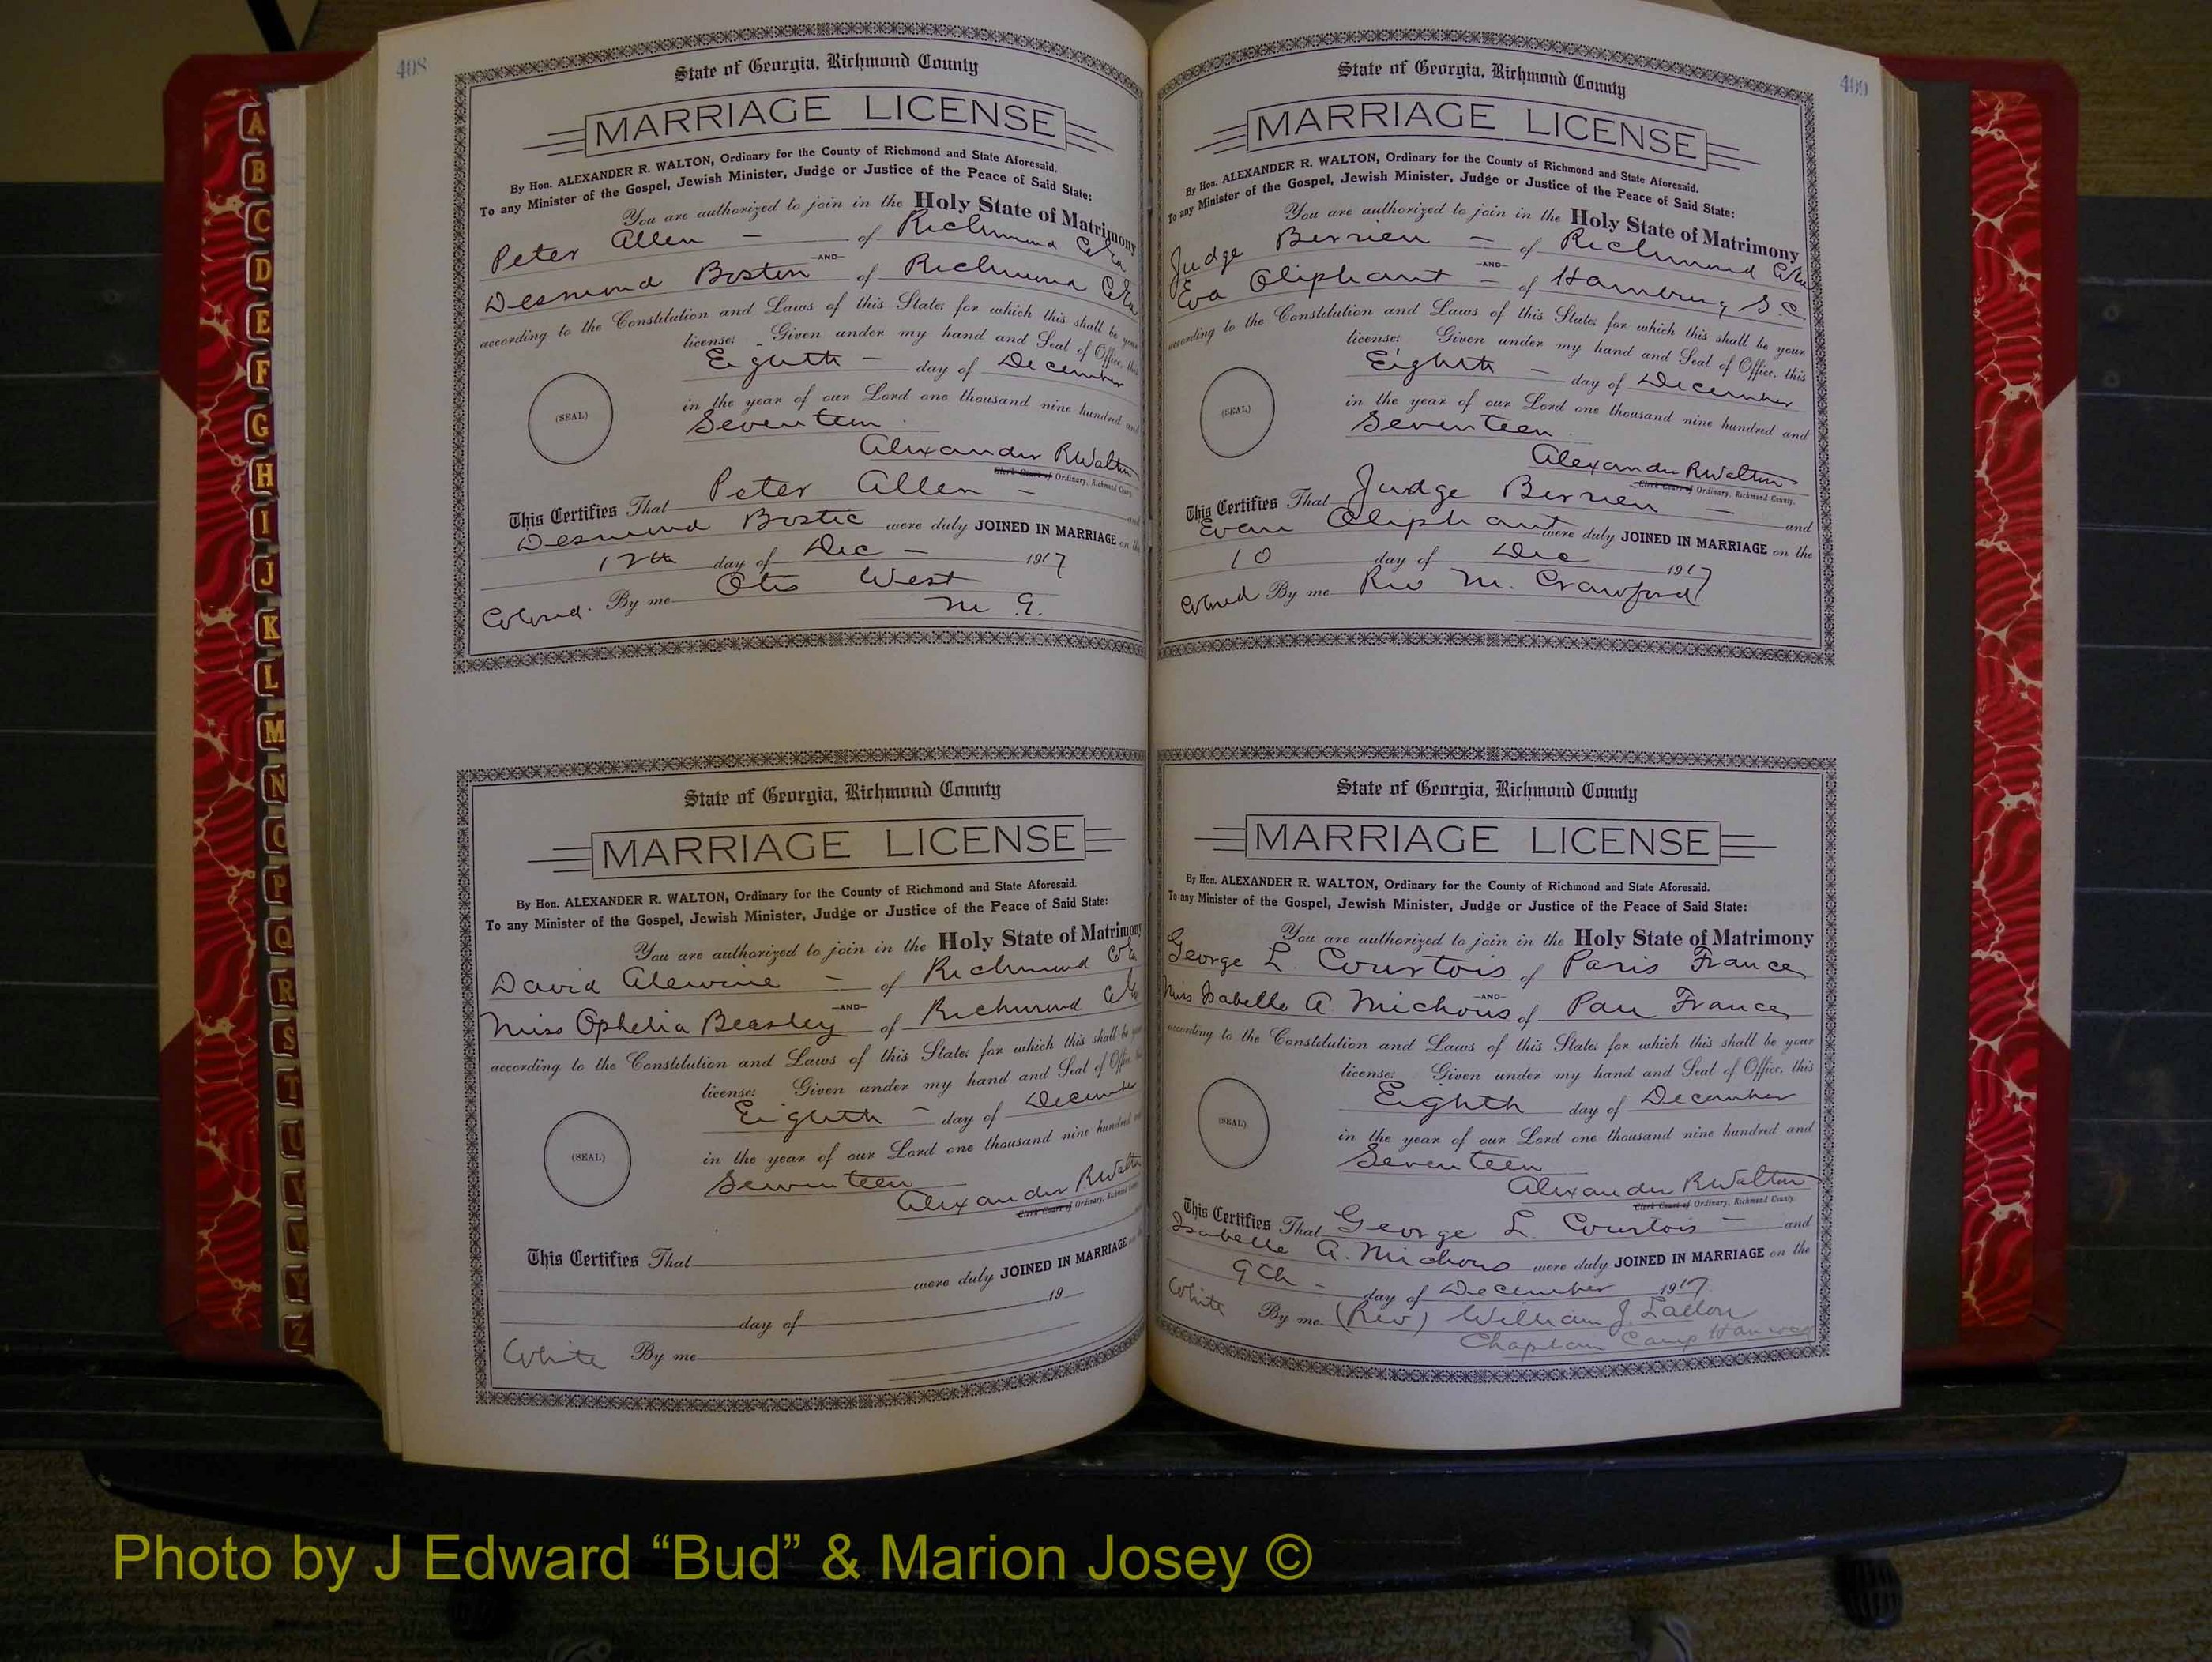 408
State of Georgia, Richmond County
MARRIAGE LICENSE
By Hon. ALEXANDER R. WALTON, Ordinary for the County of Richmond and State Aforesaid.
To any Minister of the Gospel, Jewish Minister, Judge or Justice of the Peace of Said State:
You are authorized to join in the Holy State of Matrimony
Peter Allen — of Richmond Co Ga
—AND—
Desmond Boston of Richmond Co Ga
according to the Constitution and Laws of this State; for which this shall be your
license: Given under my hand and Seal of Office, this
Eighth — day of December
(SEAL)
in the year of our Lord one thousand nine hundred and
Seventeen
Alexander R Walton
Clerk Court of Ordinary, Richmond County.
This Certifies That Peter Allen — and
Desmond Bostic were duly JOINED IN MARRIAGE on the
12th day of Dec — 1917
Colored. By me Otis West
M G.
State of Georgia, Richmond County
MARRIAGE LICENSE
By Hon. ALEXANDER R. WALTON, Ordinary for the County of Richmond and State Aforesaid.
To any Minister of the Gospel, Jewish Minister, Judge or Justice of the Peace of Said State:
You are authorized to join in the Holy State of Matrimony
David Alewine — of Richmond Co
—AND—
Miss Ophelia Beasley of Richmond Co
according to the Constitution and Laws of this State; for which this shall be your
license: Given under my hand and Seal of Office, this
Eighth — day of December
(SEAL)
in the year of our Lord one thousand nine hundred and
Seventeen
Alexander R Walton
Clerk Court of Ordinary, Richmond County.
This Certifies That
were duly JOINED IN MARRIAGE on the
day of 19
White By me
409
State of Georgia, Richmond County
MARRIAGE LICENSE
By Hon. ALEXANDER R. WALTON, Ordinary for the County of Richmond and State Aforesaid.
To any Minister of the Gospel, Jewish Minister, Judge or Justice of the Peace of Said State:
You are authorized to join in the Holy State of Matrimony
Judge Berrien — of Richmond Co Ga
—AND—
Eva Oliphant — of Hamburg S.C.
according to the Constitution and Laws of this State; for which this shall be your
license: Given under my hand and Seal of Office, this
Eighth — day of December
(SEAL)
in the year of our Lord one thousand nine hundred and
Seventeen
Alexander R Walton
Clerk Court of Ordinary, Richmond County.
This Certifies That Judge Berrien — and
Evan Oliphant were duly JOINED IN MARRIAGE on the
10 day of Dec 1917
Colored By me Rev M. Crawford
State of Georgia, Richmond County
MARRIAGE LICENSE
By Hon. ALEXANDER R. WALTON, Ordinary for the County of Richmond and State Aforesaid.
To any Minister of the Gospel, Jewish Minister, Judge or Justice of the Peace of Said State:
You are authorized to join in the Holy State of Matrimony
George L. Courtois of Paris France
—AND—
Miss Isabelle A. Michous of Pau France
according to the Constitution and Laws of this State; for which this shall be your
license: Given under my hand and Seal of Office, this
Eighth day of December
(SEAL)
in the year of our Lord one thousand nine hundred and
Seventeen
Alexander R Walton
Clerk Court of Ordinary, Richmond County.
This Certifies That George L. Courtois — and
Isabelle A. Michous were duly JOINED IN MARRIAGE on the
9th — day of December 1917
White By me (Rev) William J.
Chaplain Camp
A
B
C
D
E
F
G
H
I
J
K
L
M
N
O
P
Q
R
S
T
U
V
W
Y
Z
Photo by J Edward “Bud” & Marion Josey ©